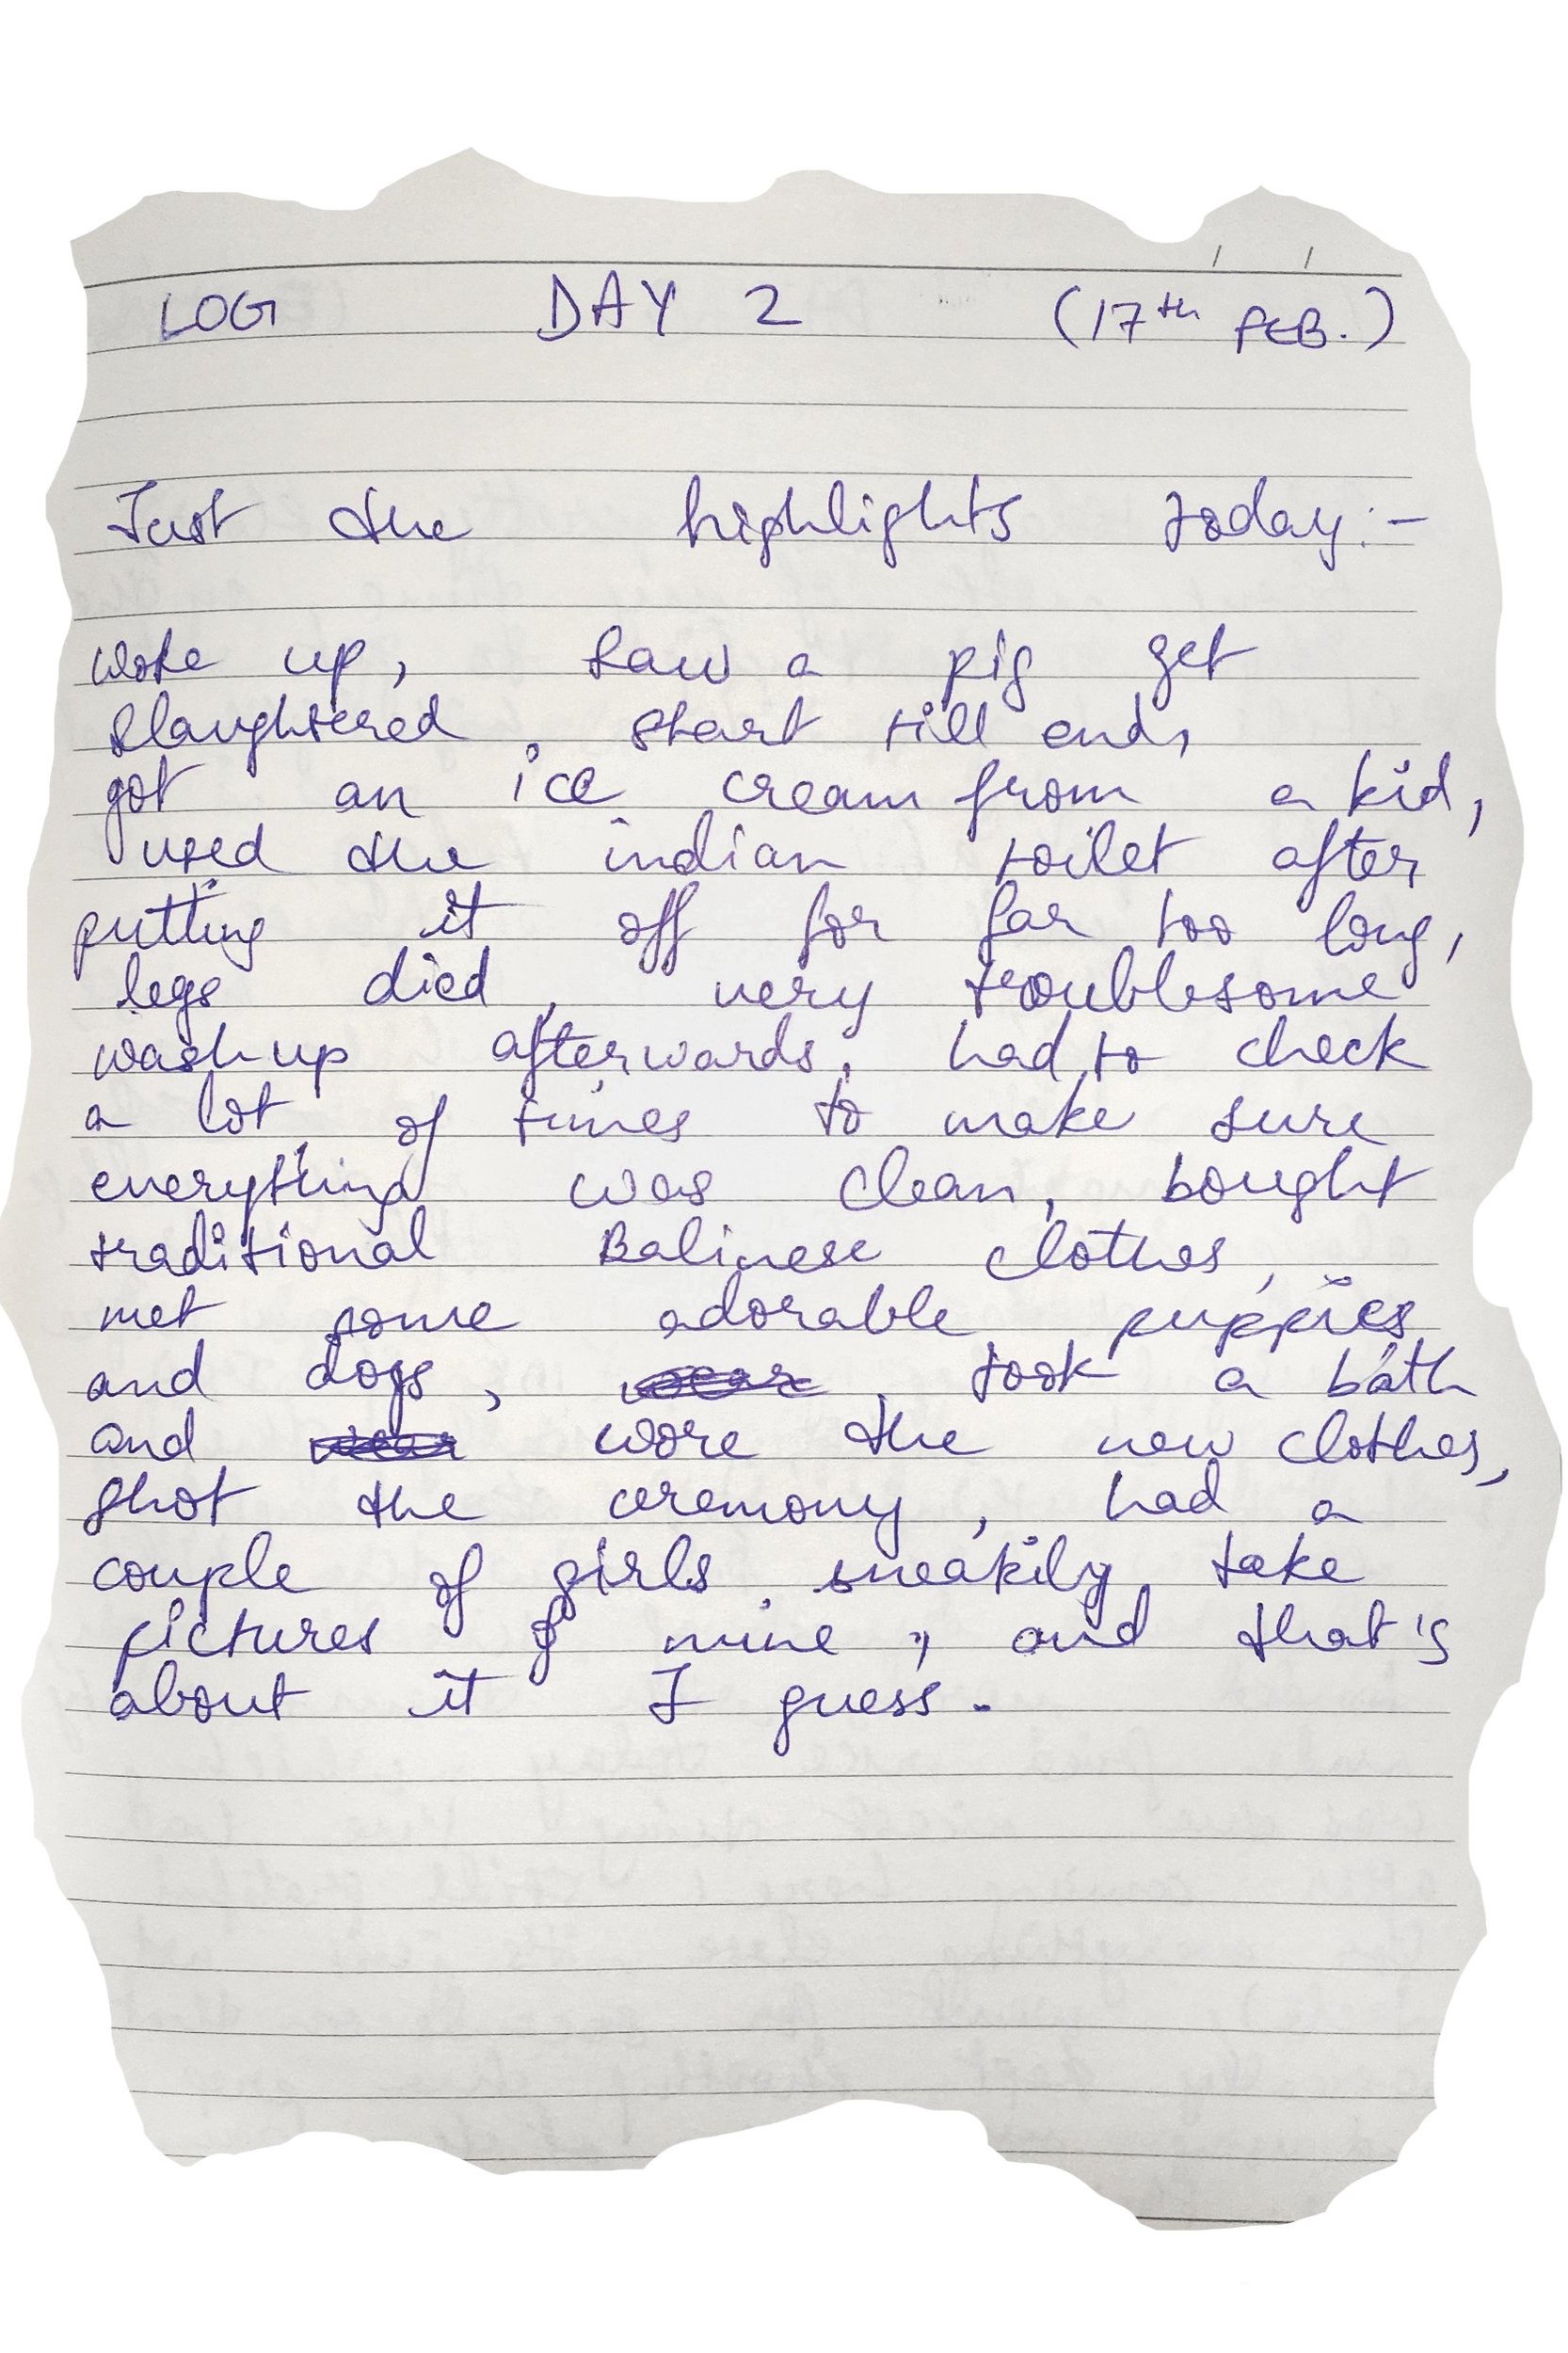 LOG DAY 2 (17th FEB.)
Just the highlights today:-
woke up, saw a pig get
slaughtered, start till end,
got an ice cream from a kid,
used the indian toilet after
putting it off for far too long,
legs died, very troublesome
wash up afterwards, had to check
a lot of times to make sure
everything was clean, bought
traditional Balinese clothes,
met some adorable puppies
and dogs, , took a bath
and wore the new clothes,
shot the ceremony, had a
couple of girls sneakily take
pictures of mine, and that's
about it I guess.